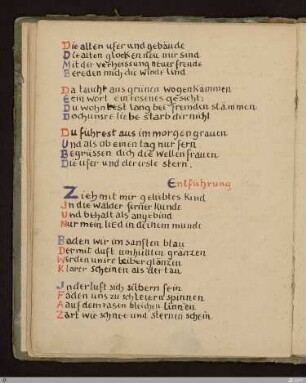 Die alten ufer und gebäude
Die alten glocken neu mir sind
Mit der verheissung neuer freude
Bereden mich die winde lind
Da taucht aus grünen wogenkämmen
Ein wort ein rosenes gesicht:
Du wohntest lang bei fremden stämmen
Doch unsre liebe starb dir nicht
Du fuhrest aus im morgengrauen
Und als ob einen tag nur fern
Begrüssen dich die wellenfrauen
Die ufer und der erste stern.
Entführung
Zieh mit mir geliebtes kind
In die wälder ferner kunde
Und behalt als angebind
Nur mein lied in deinem munde
Baden wir im sanften blau
Der mit duft umhüllten gränzen
Werden unsre leiber glänzen
Klarer scheinen als der tau.
In der luft sich silbern fein
Fäden uns zu schleiern spinnen
Auf dem rasen bleichen linnen
Zart wie schnee und sternenschein